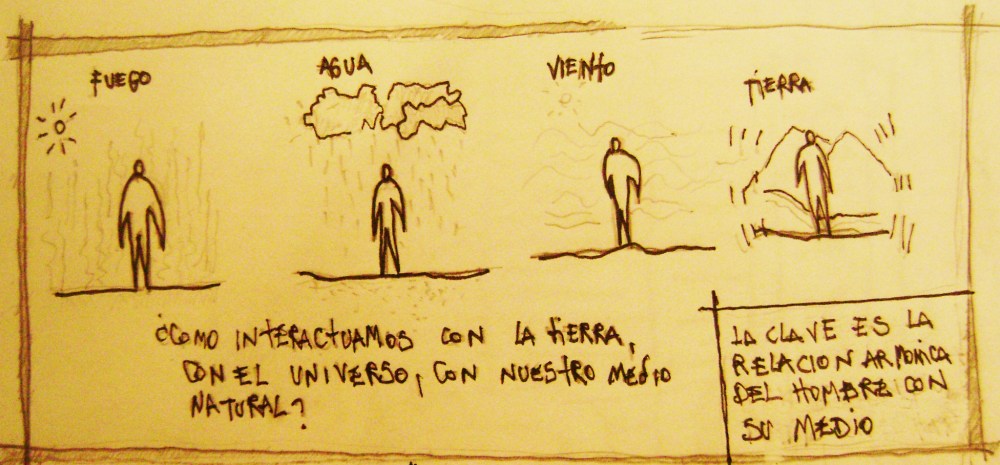 FUEGO
AGUA
VIENTO
TIERRA
¿COMO INTERACTUAMOS CON LA TIERRA,
CON EL UNIVERSO, CON NUESTRO MEDIO
NATURAL?
LA CLAVE ES LA
RELACION ARMONICA
DEL HOMBRE CON
SU MEDIO